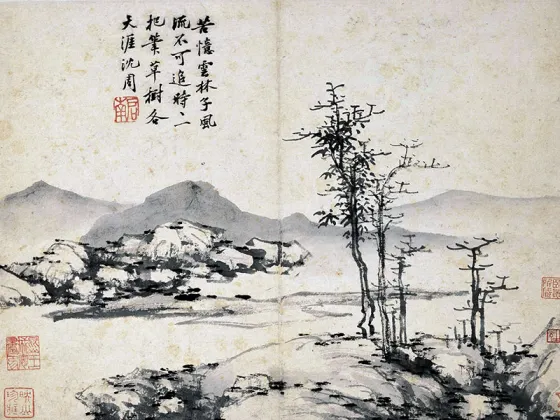 苦憶雲林子風
流不可追時二
把筆草樹各
天涯沈周
啟南